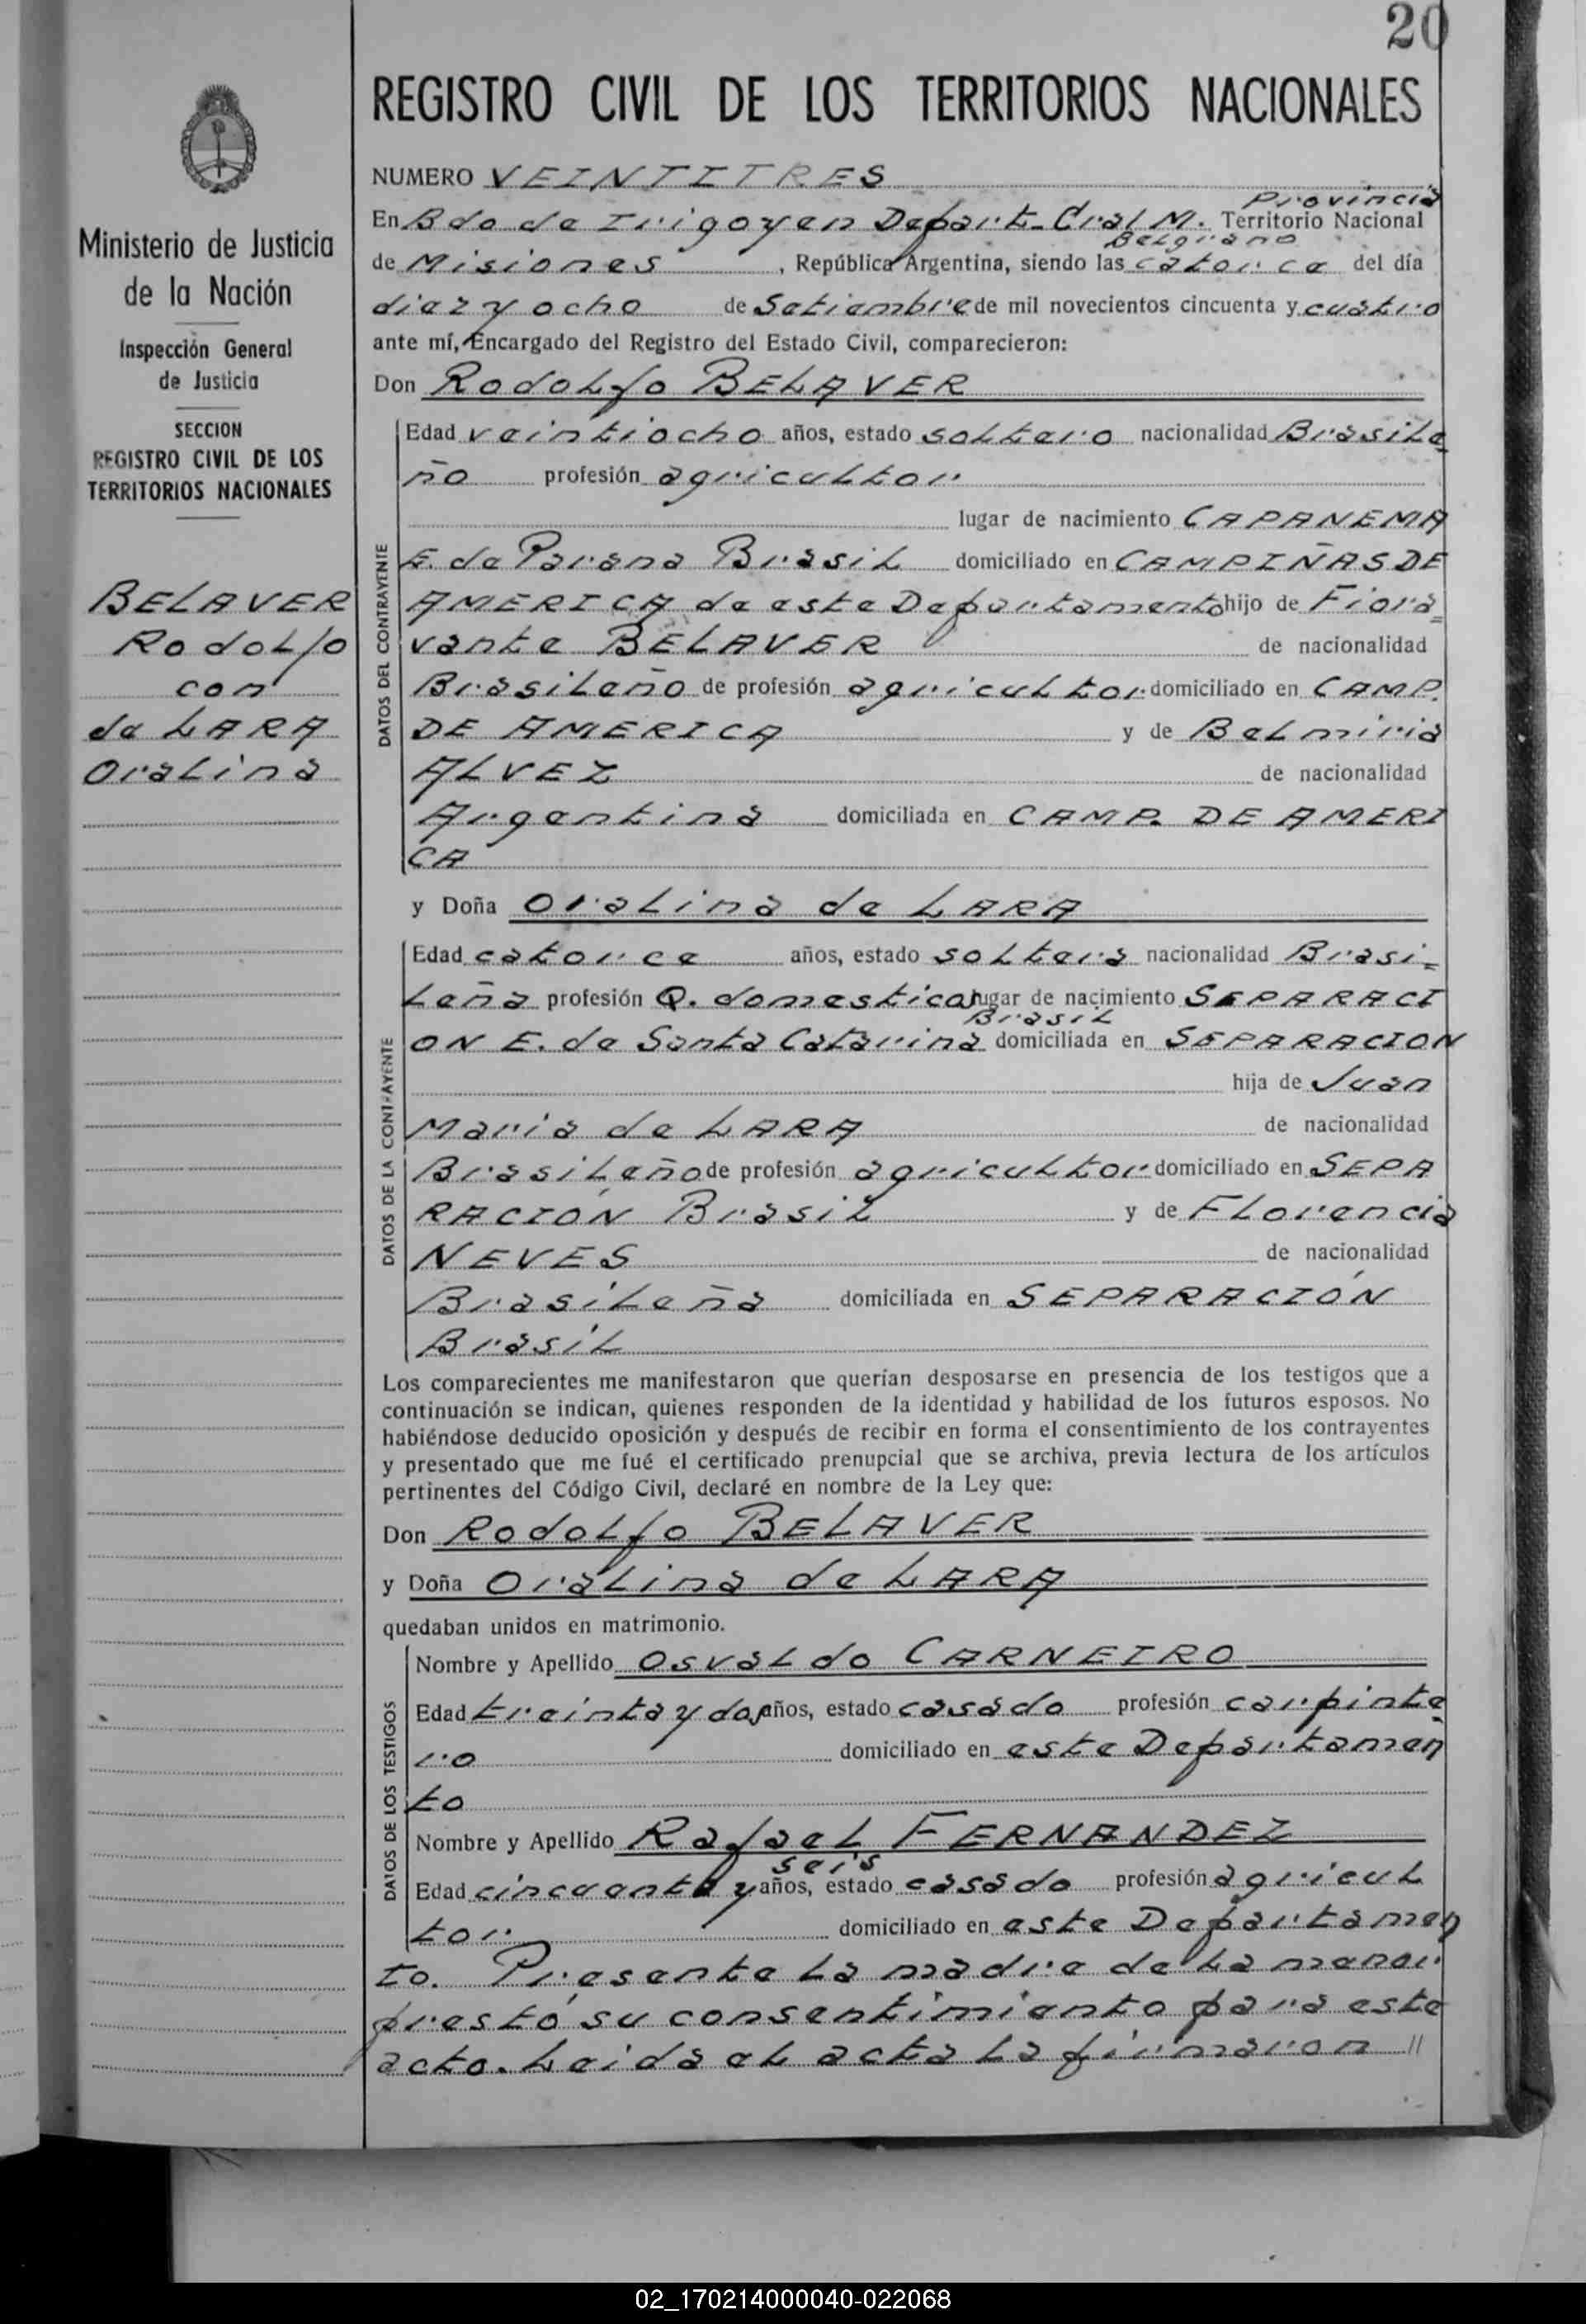 20
REGISTRO CIVIL DE LOS TERRITORIOS NACIONALES
Ministerio de Justicia
de la Nación
Inspección General
de Justicia
SECCION
REGISTRO CIVIL DE LOS
TERRITORIOS NACIONALES
BELAVER
Rodolfo
con
de LARA
Oralina
NUMERO VEINTITRES
Provincia
En Bdo de Irigoyen Depart. Gral M. Territorio Nacional
Belgrano
de Misiones , República Argentina, siendo las catorce del día
diez y ocho de Setiembre de mil novecientos cincuenta y cuatro
ante mí, Encargado del Registro del Estado Civil, comparecieron:
Don Rodolfo BELAVER
DATOS DEL CONTRAYENTE
Edad veintiocho años, estado soltero nacionalidad Brasile
ño profesión agricultor
lugar de nacimiento CAPANEMA
E. de Parana Brasil domiciliado en CAMPIÑAS DE
AMERICA de este Departamento hijo de Fiora=
vante BELAVER de nacionalidad
Brasileño de profesión agricultor domiciliado en CAMP.
DE AMERICA y de Belmiria
ALVEZ de nacionalidad
Argentina domiciliada en CAMP. DE AMERI
CA
y Doña Oralina de LARA
DATOS DE LA CONTRAYENTE
Edad catorce años, estado soltera nacionalidad Brasi=
leña profesión Q. domesticos lugar de nacimiento SEPARACI
Brasil
ON E. de Santa Catarina domiciliada en SEPARACION
hija de Juan
Maria de LARA de nacionalidad
Brasileño de profesión agricultor domiciliado en SEPA
RACIÓN Brasil y de Florencia
NEVES de nacionalidad
Brasileña domiciliada en SEPARACIÓN
Brasil
Los comparecientes me manifestaron que querían desposarse en presencia de los testigos que a
continuación se indican, quienes responden de la identidad y habilidad de los futuros esposos. No
habiéndose deducido oposición y después de recibir en forma el consentimiento de los contrayentes
y presentado que me fué el certificado prenupcial que se archiva, previa lectura de los artículos
pertinentes del Código Civil, declaré en nombre de la Ley que:
Don Rodolfo BELAVER
y Doña Oralina de LARA
quedaban unidos en matrimonio.
DATOS DE LOS TESTIGOS
Nombre y Apellido Osvaldo CARNEIRO
Edad treinta y dos años, estado casado profesión carpinte
ro domiciliado en este Departamen
to
Nombre y Apellido Rafael FERNANDEZ
seis
Edad cincuenta y años, estado casado profesión agricul
tor domiciliado en este Departamen
to. Presente la madre de la menor
prestó su consentimiento para este
acto. Leida el acta la firmaron //
02_170214000040-022068